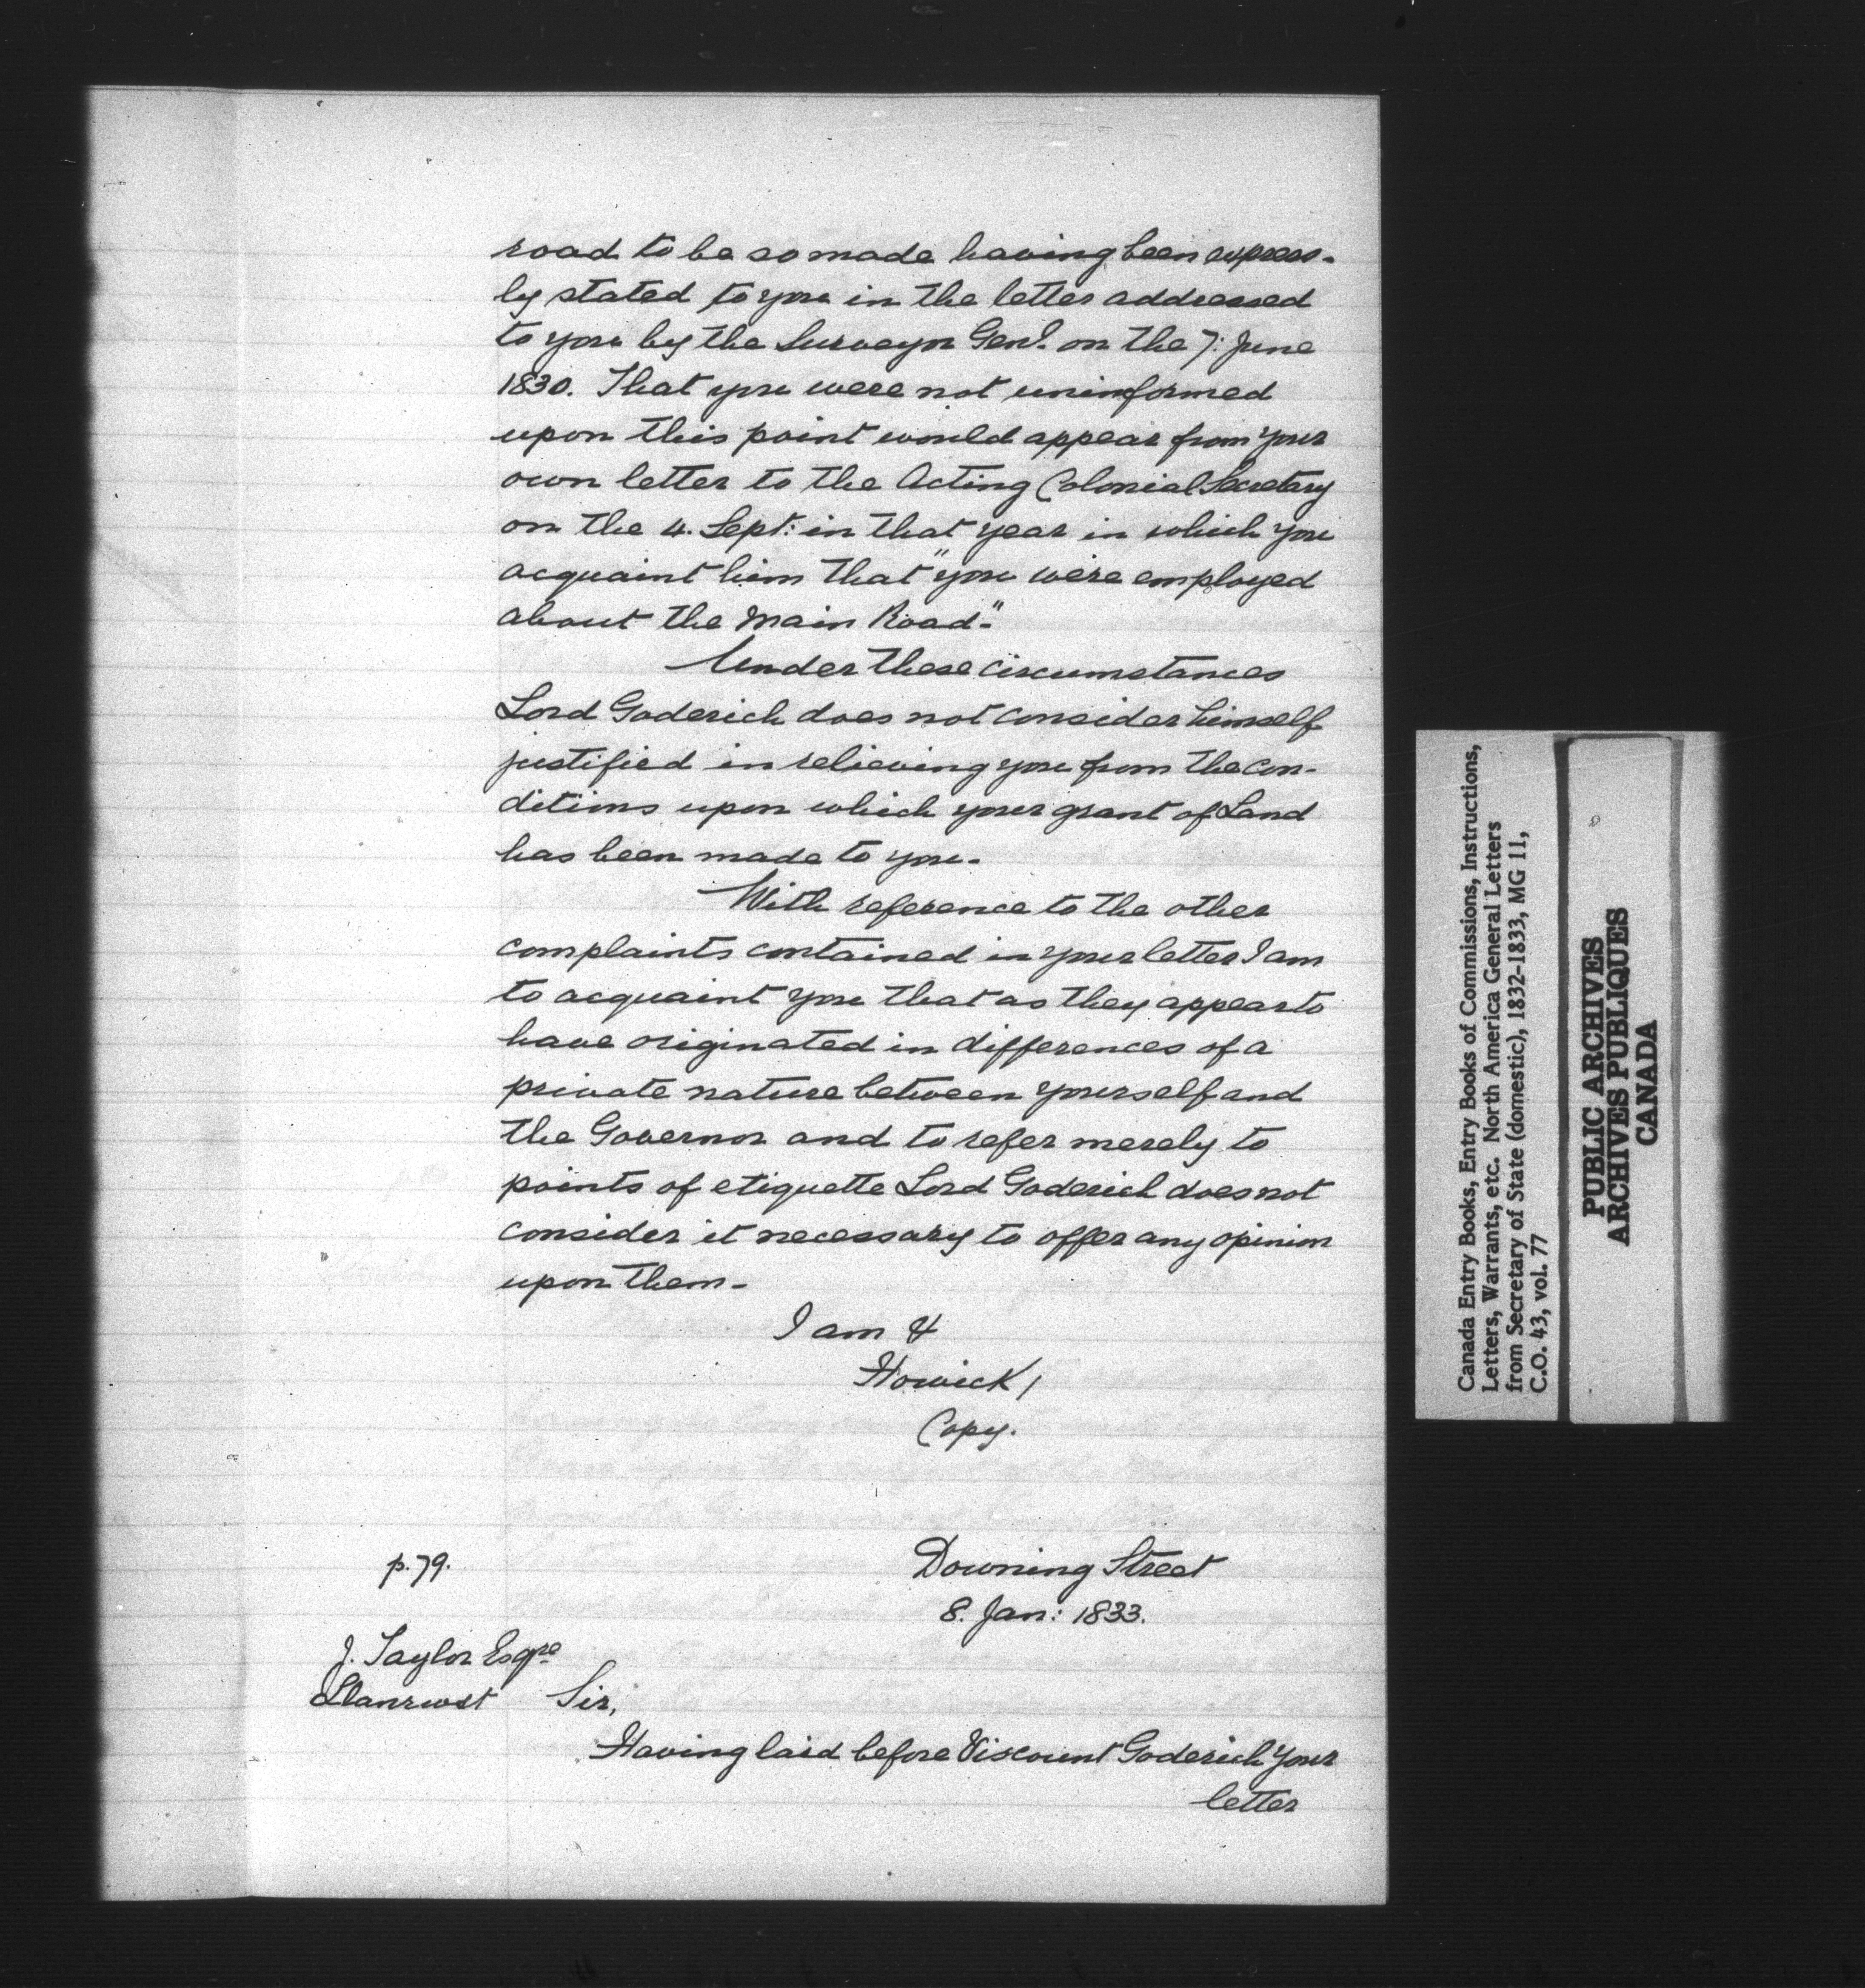 road to be so made having been express-
ly stated to you in the letter addressed
to you by the Surveyor Genl. on the 7: June
1830. That you were not uninformed
upon this point would appear from your
own letter to the Acting Colonial Secretary
on the 4. Sept: in that year in which you
acquaint him that "you were employed
about the Main Road."
Under these circumstances
Lord Goderich does not consider himself
justified in relieving you from the con-
ditions upon which your grant of Land
has been made to you.
With reference to the other
complaints contained in your letter I am
to acquaint you that as they appear to
have originated in differences of a
private nature between yourself and
the Governor and to refer merely to
points of etiquette Lord Goderich does not
consider it necessary to offer any opinion
upon them-
I am &
Howick /
Copy.
p. 79.
Downing Street
8. Jan: 1833.
J. Taylor Esqre
Llanrwst Sir,
Having laid before Viscount Goderich Your
letter
Canada Entry Books, Entry Books of Commissions, Instructions,
Letters, Warrants, etc. North America General Letters
from Secretary of State (domestic), 1832-1833, MG 11,
C.O. 43, vol. 77
PUBLIC ARCHIVES
ARCHIVES PUBLIQUES
CANADA